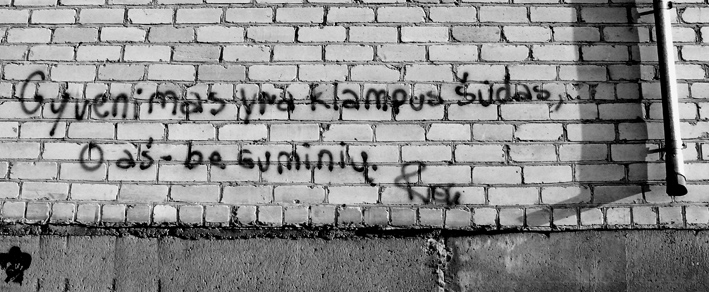 Gyvenimas yra klampus šūdas,
O aš - be guminių.